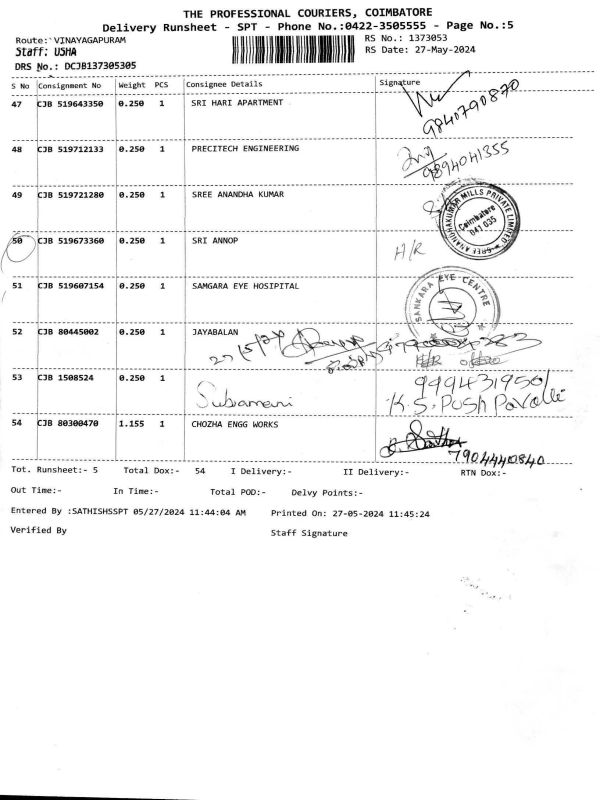 THE PROFESSIONAL COURIERS, COIMBATORE
Delivery Runsheet - SPT - Phone No.:0422-3505555 - Page No.:5
Route: VINAYAGAPURAM RS No.: 1373053
Staff: USHA RS Date: 27-May-2024
DRS No.: DCJB137305305
S No Consignment No Weight PCS Consignee Details Signature
47 CJB 519643350 0.250 1 SRI HARI APARTMENT
9840790870
48 CJB 519712133 0.250 1 PRECITECH ENGINEERING
9894041355
49 CJB 519721280 0.250 1 SREE ANANDHA KUMAR
SREE ANANDHAKUMAR MILLS PRIVATE LIMITED
Coimbatore
641 035
50 CJB 519673360 0.250 1 SRI ANNOP H/R
51 CJB 519607154 0.250 1 SAMGARA EYE HOSIPITAL
SANKARA EYE CENTRE
52 CJB 80445002 0.250 1 JAYABALAN
27/5/24
53 CJB 1508524 0.250 1
9994319501
Subramani K.S. Push Pavalli
54 CJB 80300470 1.155 1 CHOZHA ENGG WORKS
7904440840
Tot. Runsheet:- 5 Total Dox:- 54 I Delivery:- II Delivery:- RTN Dox:-
Out Time:- In Time:- Total POD:- Delvy Points:-
Entered By :SATHISHSSPT 05/27/2024 11:44:04 AM Printed On: 27-05-2024 11:45:24
Verified By Staff Signature